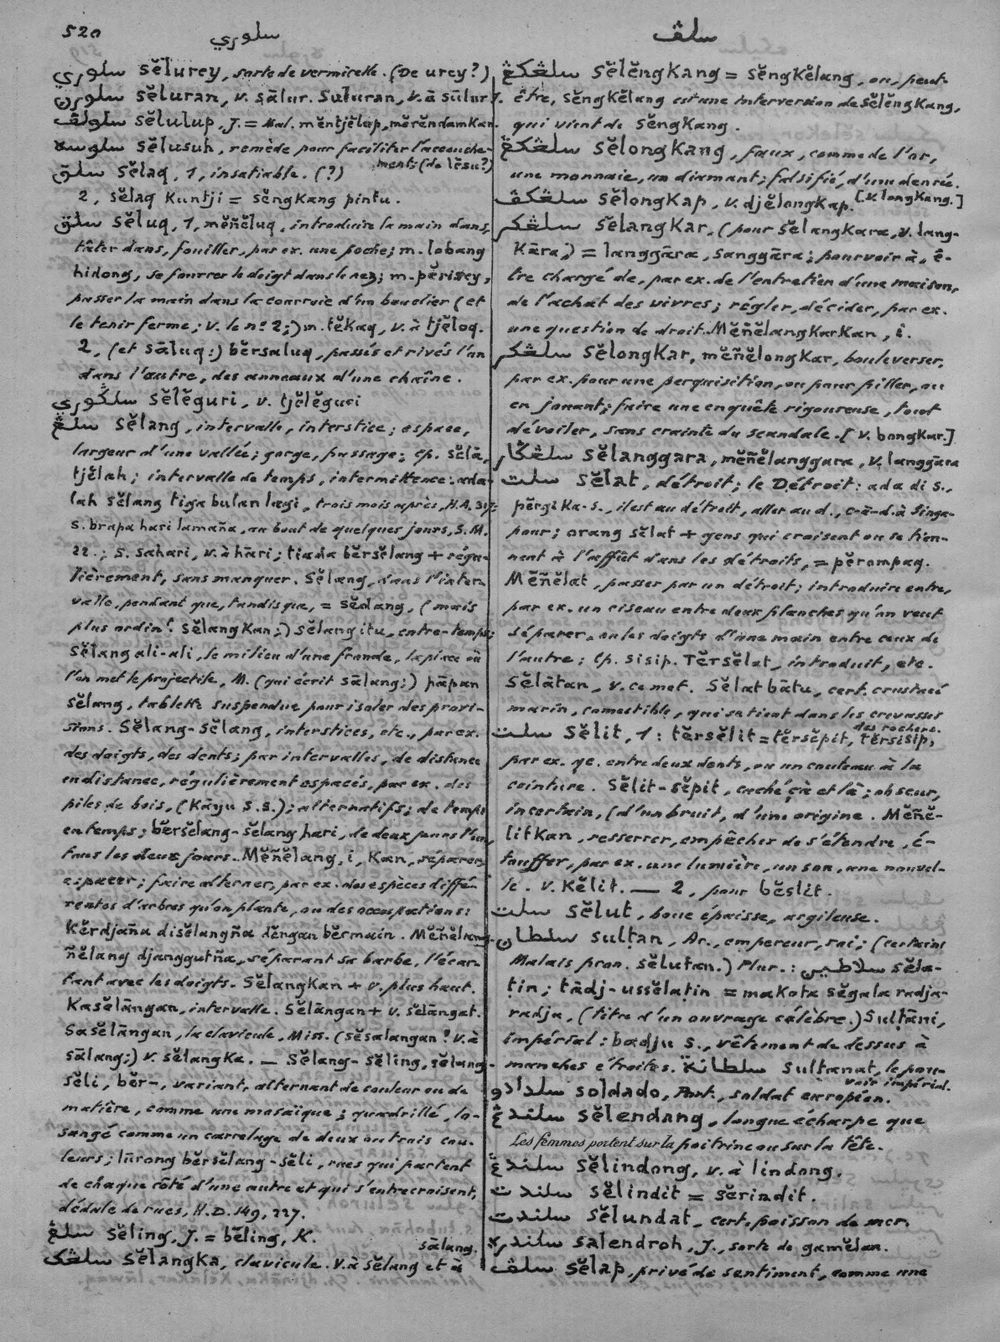 520
سلوري
سلڤ
سلوري sĕlurey, sorte de vermicelle. (De urey?)
سلورن sĕluran, v. sālur. Suluran, v. à sūlur.
سلولڤ sĕlulup, J. = Mal. mĕntjĕlup, mĕrĕndamkan.
سلوسه sĕlusuh, remède pour faciliter l'accouche-
ment. (de lĕsu?)
سلق sĕlaq, 1, insatiable. (?)
2, sĕlaq kuntji = sĕngkang pintu.
سلق sĕluq, 1, mĕñĕluq, introduire la main dans,
tâter dans, fouiller, par ex. une poche; m. lobang
hidong, se fourrer le doigt dans le nez; m. pĕrisey,
passer la main dans la courroie d'un bouclier (et
le tenir ferme; v. le n.º 2;) m. tĕkaq, v. à tjĕloq.
2, (et sāluq:) bĕrsaluq, passés et rivés l'un
dans l'autre, des anneaux d'une chaîne.
سلڬوري sĕlĕguri, v. tjĕlĕguri
سلڠ sĕlang, intervalle, interstice; espace,
largeur d'une vallée; gorge, passage; cp. sĕlā,
tjĕlah; intervalle de temps, intermittence: ada-
lah sĕlang tiga bulan lagi, trois mois après, H.A. 317;
s. brapa hari lamaña, au bout de quelques jours, S.M.
22.; s. sahari, v. à hāri; tiada bĕrsĕlang + régu-
lièrement, sans manquer. Sĕlang, dans l'inter-
valle, pendant que, tandis que, = sĕdang, (mais
plus ordin.t sĕlangkan;) sĕlang itu, entre-temps;
sĕlang ali-ali, le milieu d'une fronde, la place où
l'on met le projectile, M. (qui écrit sālang;) pāpan
sĕlang, tablette suspendue pour isoler des provi-
sions. Sĕlang-sĕlang, interstices, etc., par ex.
des doigts, des dents; par intervalles, de distance
en distance, régulièrement espacés, par ex. des
piles de bois, (kāyu s.s.); alternatifs; de temps
en temps; bĕrsĕlang-sĕlang hari, de deux jours l'un,
tous les deux jours. Mĕñĕlang, i, kan, séparer,
espacer; faire alterner, par ex. des espèces diffé-
rentes d'arbres qu'on plante, ou des occupations:
kĕrdjaña disĕlangña dĕngan bĕrmain. Mĕñĕlang-
ñĕlang djanggutña, séparant sa barbe, l'écar-
tant avec les doigts. Sĕlangkan + v. plus haut.
Kasĕlāngan, intervalle. Sĕlāngan + v. sĕlāngat.
Sasĕlāngan, la clavicule, Miss. (sĕsalangan? v. à
sālang;) v. sĕlangka. — Sĕlang-sĕling, sĕlang-
sĕli, bĕr-, variant, alternant de couleur ou de
matière, comme une mosaïque; quadrillé, lo-
sangé comme un carrelage de deux ou trois cou-
leurs; lūrong bĕrsĕlang-sĕli, rues qui partent
de chaque côté d'une autre et qui s'entrecroisent,
dédale de rues, H.D. 149, 227.
سلڠ sĕling, J. = bĕling, K.
سلڠک sĕlangka, clavicule. v. à sĕlang et à
sālang.
سلڠكڠ sĕlĕngkang = sĕngkĕlang, ou, peut-
être, sĕngkĕlang est une interversion de sĕlĕngkang,
qui vient de sĕngkang.
سلڠكڠ sĕlongkang, faux, comme de l'or,
une monnaie, un diamant; falsifié, d'une denrée.
[v. longkang.]
سلڠكڤ sĕlongkap, v. djĕlongkap.
سلڠكر sĕlangkar, (pour sĕlangkara, v. lang-
kāra,) = langgāra, sanggāra; pourvoir à, ê-
tre chargé de, par ex. de l'entretien d'une maison,
de l'achat des vivres; régler, décider, par ex.
une question de droit. Mĕñĕlangkarkan, i.
سلڠكر sĕlongkar, mĕñĕlongkar, bouleverser,
par ex. pour une perquisition, ou pour piller, ou
en jouant; faire une enquête rigoureuse, tout
dévoiler, sans crainte du scandale. [v. bongkar.]
سلڠڬار sĕlanggara, mĕñĕlanggara, v. langgāra
سلت sĕlat, détroit; le Détroit: ada di s.,
pĕrgi ka-s., il est au détroit, aller au d., c-à-d. à Singa-
pour; orang sĕlat + gens qui croisent ou se tien-
nent à l'affût dans les détroits, = pĕrompaq.
Mĕñĕlat, passer par un détroit; introduire entre,
par ex. un ciseau entre deux planches qu'on veut
séparer, ou les doigts d'une main entre ceux de
l'autre; cp. sisip. Tĕrsĕlat, introduit, etc.
Sĕlātan, v. ce mot. Sĕlat bātu, cert. crustacé
marin, comestible, qui se tient dans les crevasses
des rochers.
سلت sĕlit, 1: tĕrsĕlit = tĕrsĕpit, tĕrsisip,
par ex. qc. entre deux dents, ou un couteau à la
ceinture. Sĕlit-sĕpit, caché çà et là; obscur,
incertain, (d'un bruit, d'une origine. Mĕñĕ-
litkan, resserrer, empêcher de s'étendre, é-
touffer, par ex. une lumière, un son, une nouvel-
le. v. kĕlit. — 2, pour bĕslit.
سلت sĕlut, boue épaisse, argileuse.
سلطان sultan, Ar., empereur, roi; (certains
Malais pron. sĕlutan.) Plur.: سلاطين sĕla-
ṭin; tādj-ussĕlaṭin = makota sĕgala radja-
radja, (titre d'un ouvrage célèbre.) Sulṭāni,
impérial: badju s., vêtement de dessus à
manches étroites. سلطانة sulṭanat, le pou-
voir impérial.
سلدادو soldado, Port., soldat européen.
سلندڠ sĕlendang, longue écharpe que
les femmes portent sur la poitrine ou sur la tête.
سلندڠ sĕlindong, v. à lindong.
سلندت sĕlindit = sĕrindit.
سلندت sĕlundat, cert. poisson de mer.
سلندره salendroh, J., sorte de gamĕlan.
سلڤ sĕlap, privé de sentiment, comme une